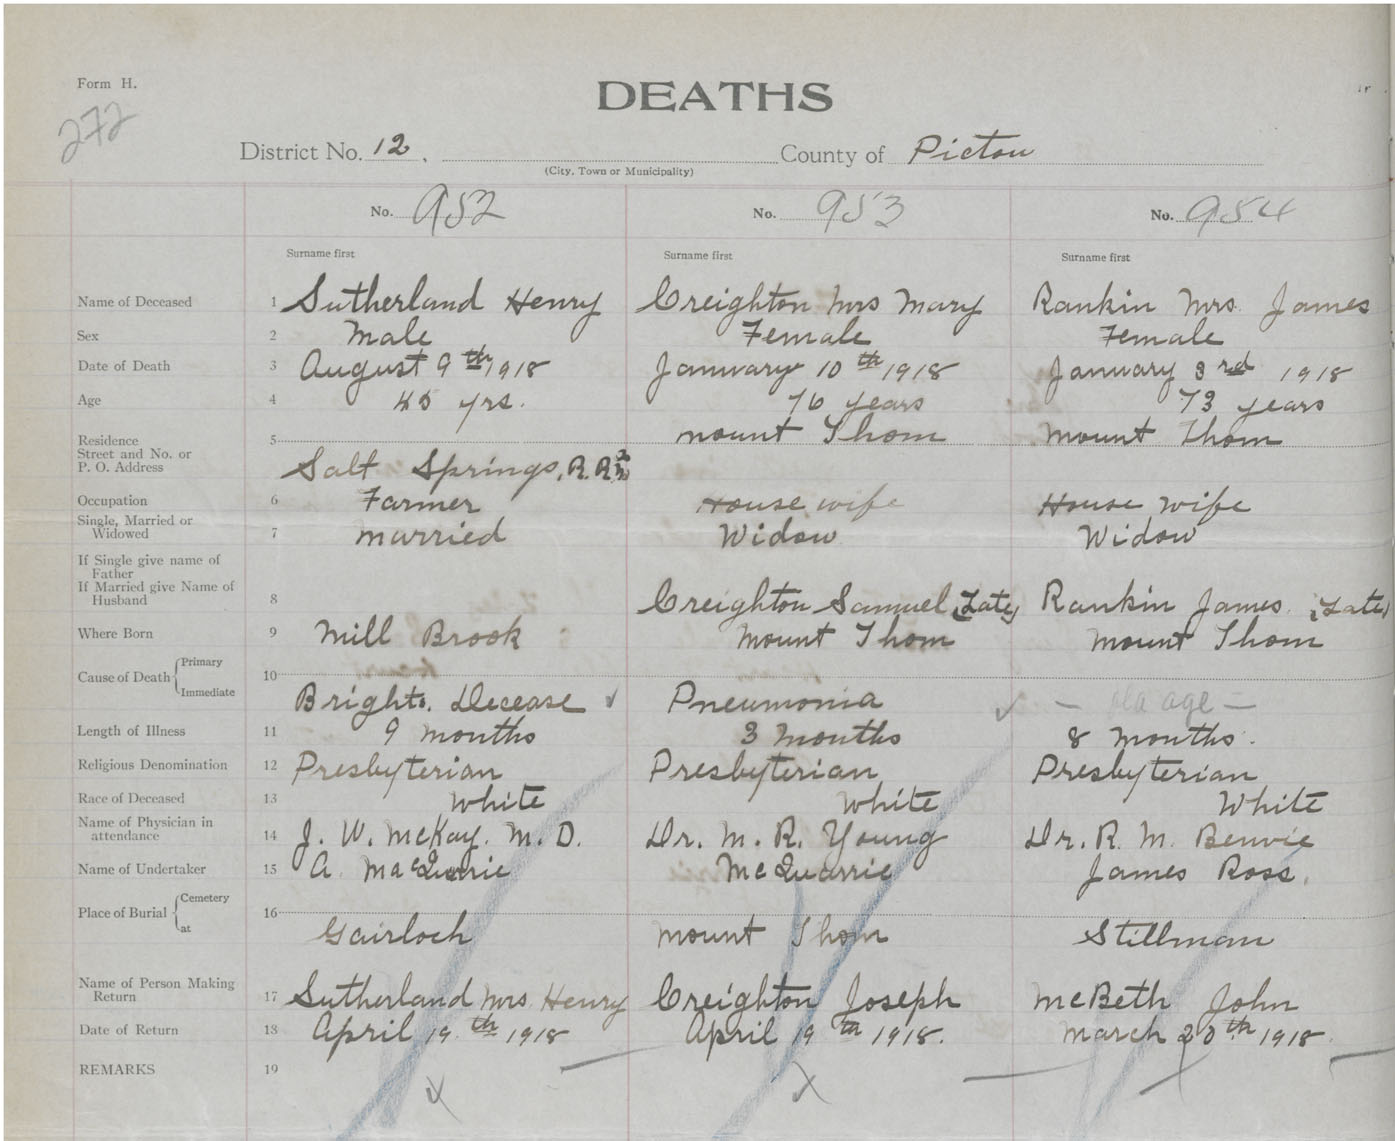 Form H.
DEATHS
272
District No. 12. County of Pictou
(City, Town or Municipality)
No. 952 No. 953 No. 954
Surname first Surname first Surname first
Name of Deceased 1 Sutherland Henry Creighton Mrs Mary Rankin Mrs. James
Sex 2 Male Female Female
Date of Death 3 August 9th 1918 January 10th 1918 January 3rd 1918
Age 4 45 yrs. 76 years 73 years
Residence 5 Mount Thom Mount Thom
Street and No. or
P. O. Address Salt Springs, R. R.
Occupation 6 Farmer House wife House wife
Single, Married or
Widowed 7 Married Widow Widow
If Single give name of
Father
If Married give Name of
Husband 8 Creighton Samuel (Late) Rankin James. (Late)
Where Born 9 Mill Brook Mount Thom Mount Thom
Cause of Death { Primary 10
Immediate Brights. Decease Pneumonia — old age —
Length of Illness 11 9 months 3 Months 8 Months.
Religious Denomination 12 Presbyterian Presbyterian Presbyterian
Race of Deceased 13 White White White
Name of Physician in
attendance 14 J. W. McKay. M. D. Dr. M. R. Young Dr. R. M. Benvie
Name of Undertaker 15 A. MacQuarrie McQuarrie James Ross.
Place of Burial { Cemetery 16
at Gairloch Mount Thom Stillman
Name of Person Making
Return 17 Sutherland Mrs. Henry Creighton Joseph McBeth John
Date of Return 18 April 19th 1918 April 19th 1918. March 20th 1918.
REMARKS 19